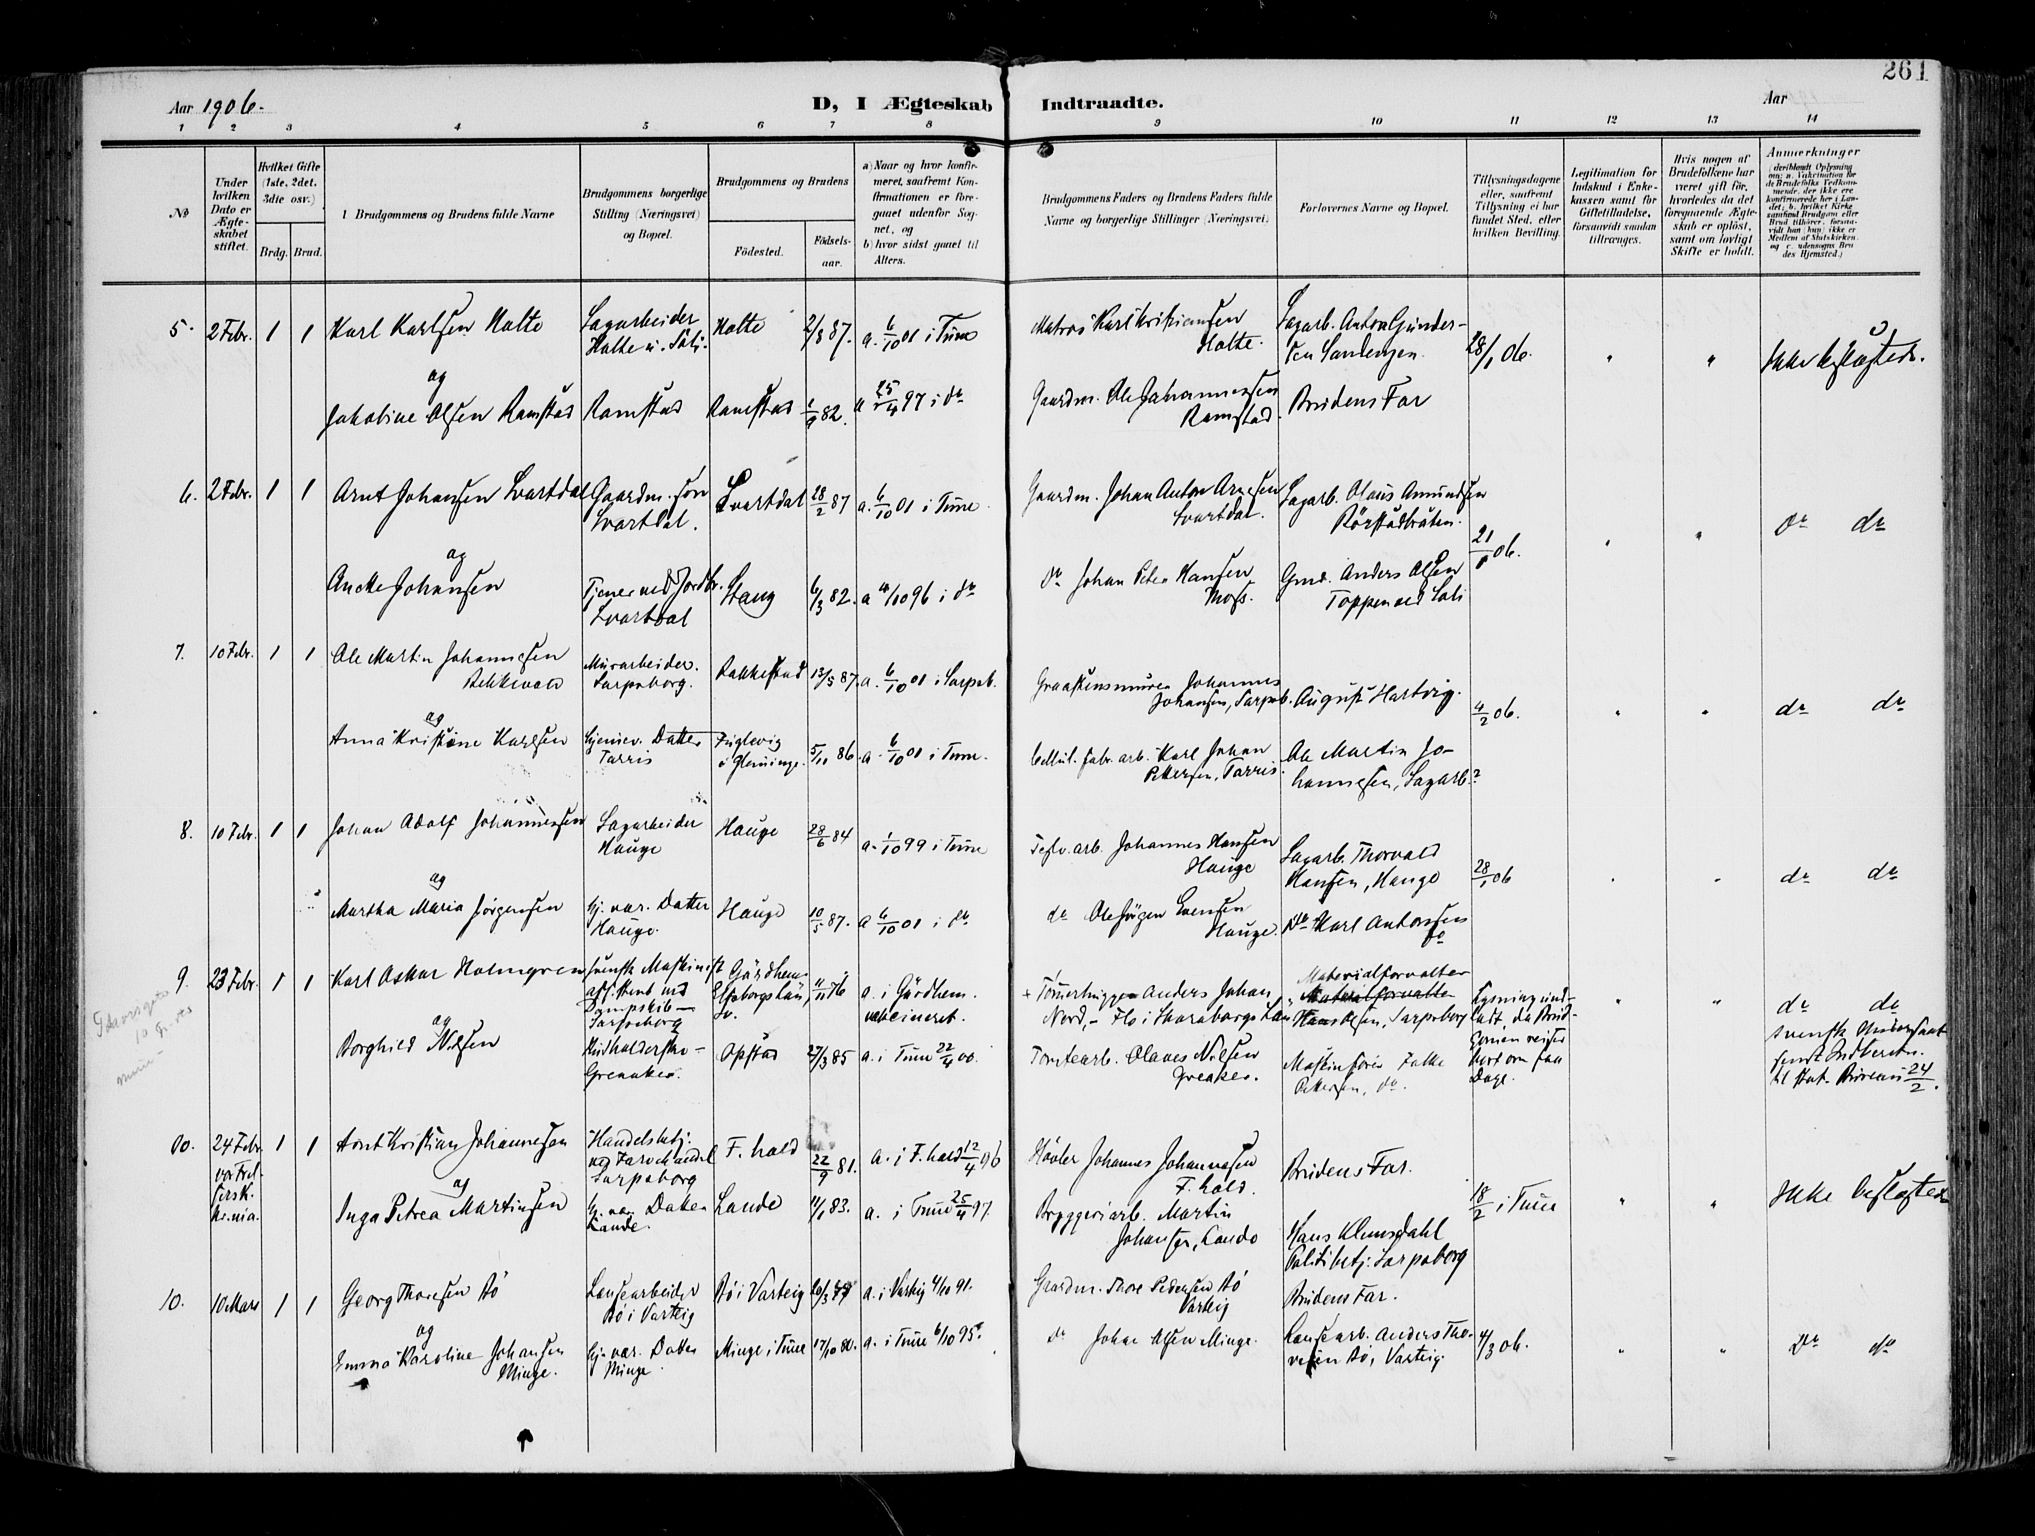 261
Aar 1906.
D, I Ægteskab Indtraadte.
Aar
1 2 3 4 5 6 7 8 9 10 11 12 13 14
№
Under
hvilken
Dato er
Ægte-
skabet
stiftet.
Hvilket Gifte
(1ste, 2det,
3die osv.)
Brdg. Brud.
1 Brudgommens og Brudens fulde Navne
Brudgommens borgerlige
Stilling (Næringsvei)
og Bopæl.
Brudgommens og Brudens
Fødested.
Fødsels-
aar.
a) Naar og hvor konfir-
meret, saafremt Kon-
firmationen er fore-
gaaet udenfor Sog-
net, og
b) hvor sidst gaaet til
Alters.
Brudgommens Faders og Brudens Faders fulde
Navne og borgerlige Stillinger (Næringsvei)
Forlovernes Navne og Bopæl.
Tillysningsdagene
eller, saafremt
Tillysning ei har
fundet Sted, efter
hvilken Bevilling.
Legitimation for
Indskud i Enke-
kassen samt for
Giftetilladelse,
forsaavidt saadan
tiltrænges.
Hvis nogen af
Brudefolkene har
været gift før,
hvorledes da det
foregaaende Ægte-
skab er opløst,
samt om lovligt
Skifte er holdt.
Anmerkninger
(deriblandt Oplysning
om: a. Vakcination for
de Brudefolks Vedkom-
mende, der ikke ere
konfirmerede her i Lan-
det; b. hvilket Kirke-
samfund Brudgom eller
Brud tilhører, forsaa-
vidt han (hun) ikke er
Medlem af Statskirken.
og c. udensogns Bru-
des Hjemsted.)
5. 2 Febr. 1 1
Karl Karlsen Holte
Sagarbeider
Holte u. Soli.
Holte
2/8 87.
a. 6/10 01 i Tune
Matros Karl Kristiansen
Holte.
Sagarb. Anton Gunder-
sen Sandengen.
28/1 06.
Ikke beslægtede.
og
Jakobine Olsen Ramstad
Ramstad
Ramstad
1/9 82.
a 25/4 97 i do
Gaardm. Ole Johannessen
Ramstad.
Brudens Far
6. 2 Febr. 1 1
Arnt Johansen Svartdal
Gaardm. søn
Svartdal.
Svartdal
28/2 87
a. 6/10 01 i Tune
Gaardm. Johan Anton Arnesen
Svartdal.
Sagarb. Olaus Amundsen
Rørstadbråten.
21/1 06.
do do
og
Johansen
Tjener ved Jordbr.
Svartdal
6/3 82.
a 4/10 96 i do
do Johan Peter Hansen
Gmd. Anders Olsen
Toppen ved Soli
7. 10 Febr. 1 1
Ole Martin Johannesen
Bekkevold
Murarbeider.
Sarpsborg.
Rakkestad
13/5 87.
a. 6/10 01 i Sarpsb.
Graastensmurer Johannes
Johansen, Sarpsb.
August Hartvig.
4/2 06.
do do
og
Anna Kristine Karlsen
hjemev. Datter
Tarris
Fuglevig
i Glemminge.
5/11 86
a. 6/10 01 i Tune.
Cellul. fabr. arb. Karl Johan
Pettersen, Tarris.
Ole Martin Jo-
hannesen, Sagarb.?
8. 10 Febr. 1 1
Johan Adolf Johannessen
Sagarbeider
Hauge
Hauge
28/6 84
a. 1/10 99 i Tune
Teglv. arb. Johannes Hansen
Hauge
Sagarb. Thorvald
Hansen, Hauge
28/1 06
do do
og
Martha Maria Jørgensen
hj. vær. Datter
Hauge.
Hauge
10/5 87.
a 6/10 01 i do
do Ole Jørgen Evensen
Hauge.
do Karl Antonsen
do
9. 23 Febr. 1 1
Karl Oskar Holmgren
svensk Maskinist
assistent ved
Dampskib -
Sarpsborg
Gärdhem
Elfsborgs Län,
Sv.
11/11 76
a. i Gärdhem.
vakcineret.
+ Tømmerhugger Anders Johan
Nord, - Flo i Skaraborgs Län
Materialforvalter
Hans Olsen, Sarpsborg
Lysning und-
ladt, da Brud-
gommen reiser
bort om faa
Dage.
do do
svensk Undersaat
sendt Indberetn.
til Stat. Bureau 24/2.
og
Borghild Nilsen
Husholderske -
Greaaker.
Opstad
27/3 85
a. i Tune 22/4 00.
Tomtearb. Olaves Nilsen
Greaker.
Maskinfører Falke
Pettersen, do.
10. 24 Febr. 1 1
Arnt Kristian Johannesen
Handelsbetj.
ved Farvehandel
Sarpsborg
F. hald
22/9 81.
a. i F. hald 12/4 96
Høvler Johannes Johannesen
F. hald.
Brudens Far.
18/2 i Tune
Ikke beslægtede
og
Inga Petrea Martinsen
hj. vær. Datter
Lande.
Lande
11/1 83.
a. i Tune 25/4 97.
Bryggeriarb. Martin
Johansen, Lande
Hans Klemsdahl
Politibetj. Sarpsborg
10. 10 Mars 1 1
Georg Thoresen Bø
Løsearbeider
Bø i Varteig
Bø i Varteig
a. i Varteig 4/10 91.
Gaardm. Thore Pedersen Bø
Varteig
Brudens Far.
4/3 06.
do do
og
Emma Karoline Johansen
Minge.
hj. vær. Datter
Minge
Minge i Tune
17/10 80.
a. i Tune 6/10 95.
do Johan Olsen Minge.
Løsearb. Anders Tho-
resen Bø, Varteig